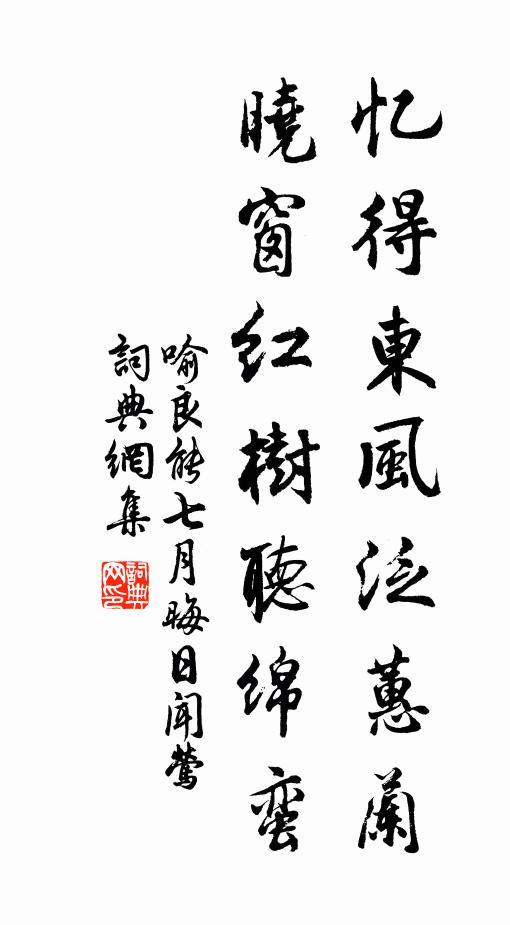 忆得東風泛蕙蘭
曉窗红樹聴绵蛮
喻良能七月晦日闻莺
詞典網集
詞典
网印